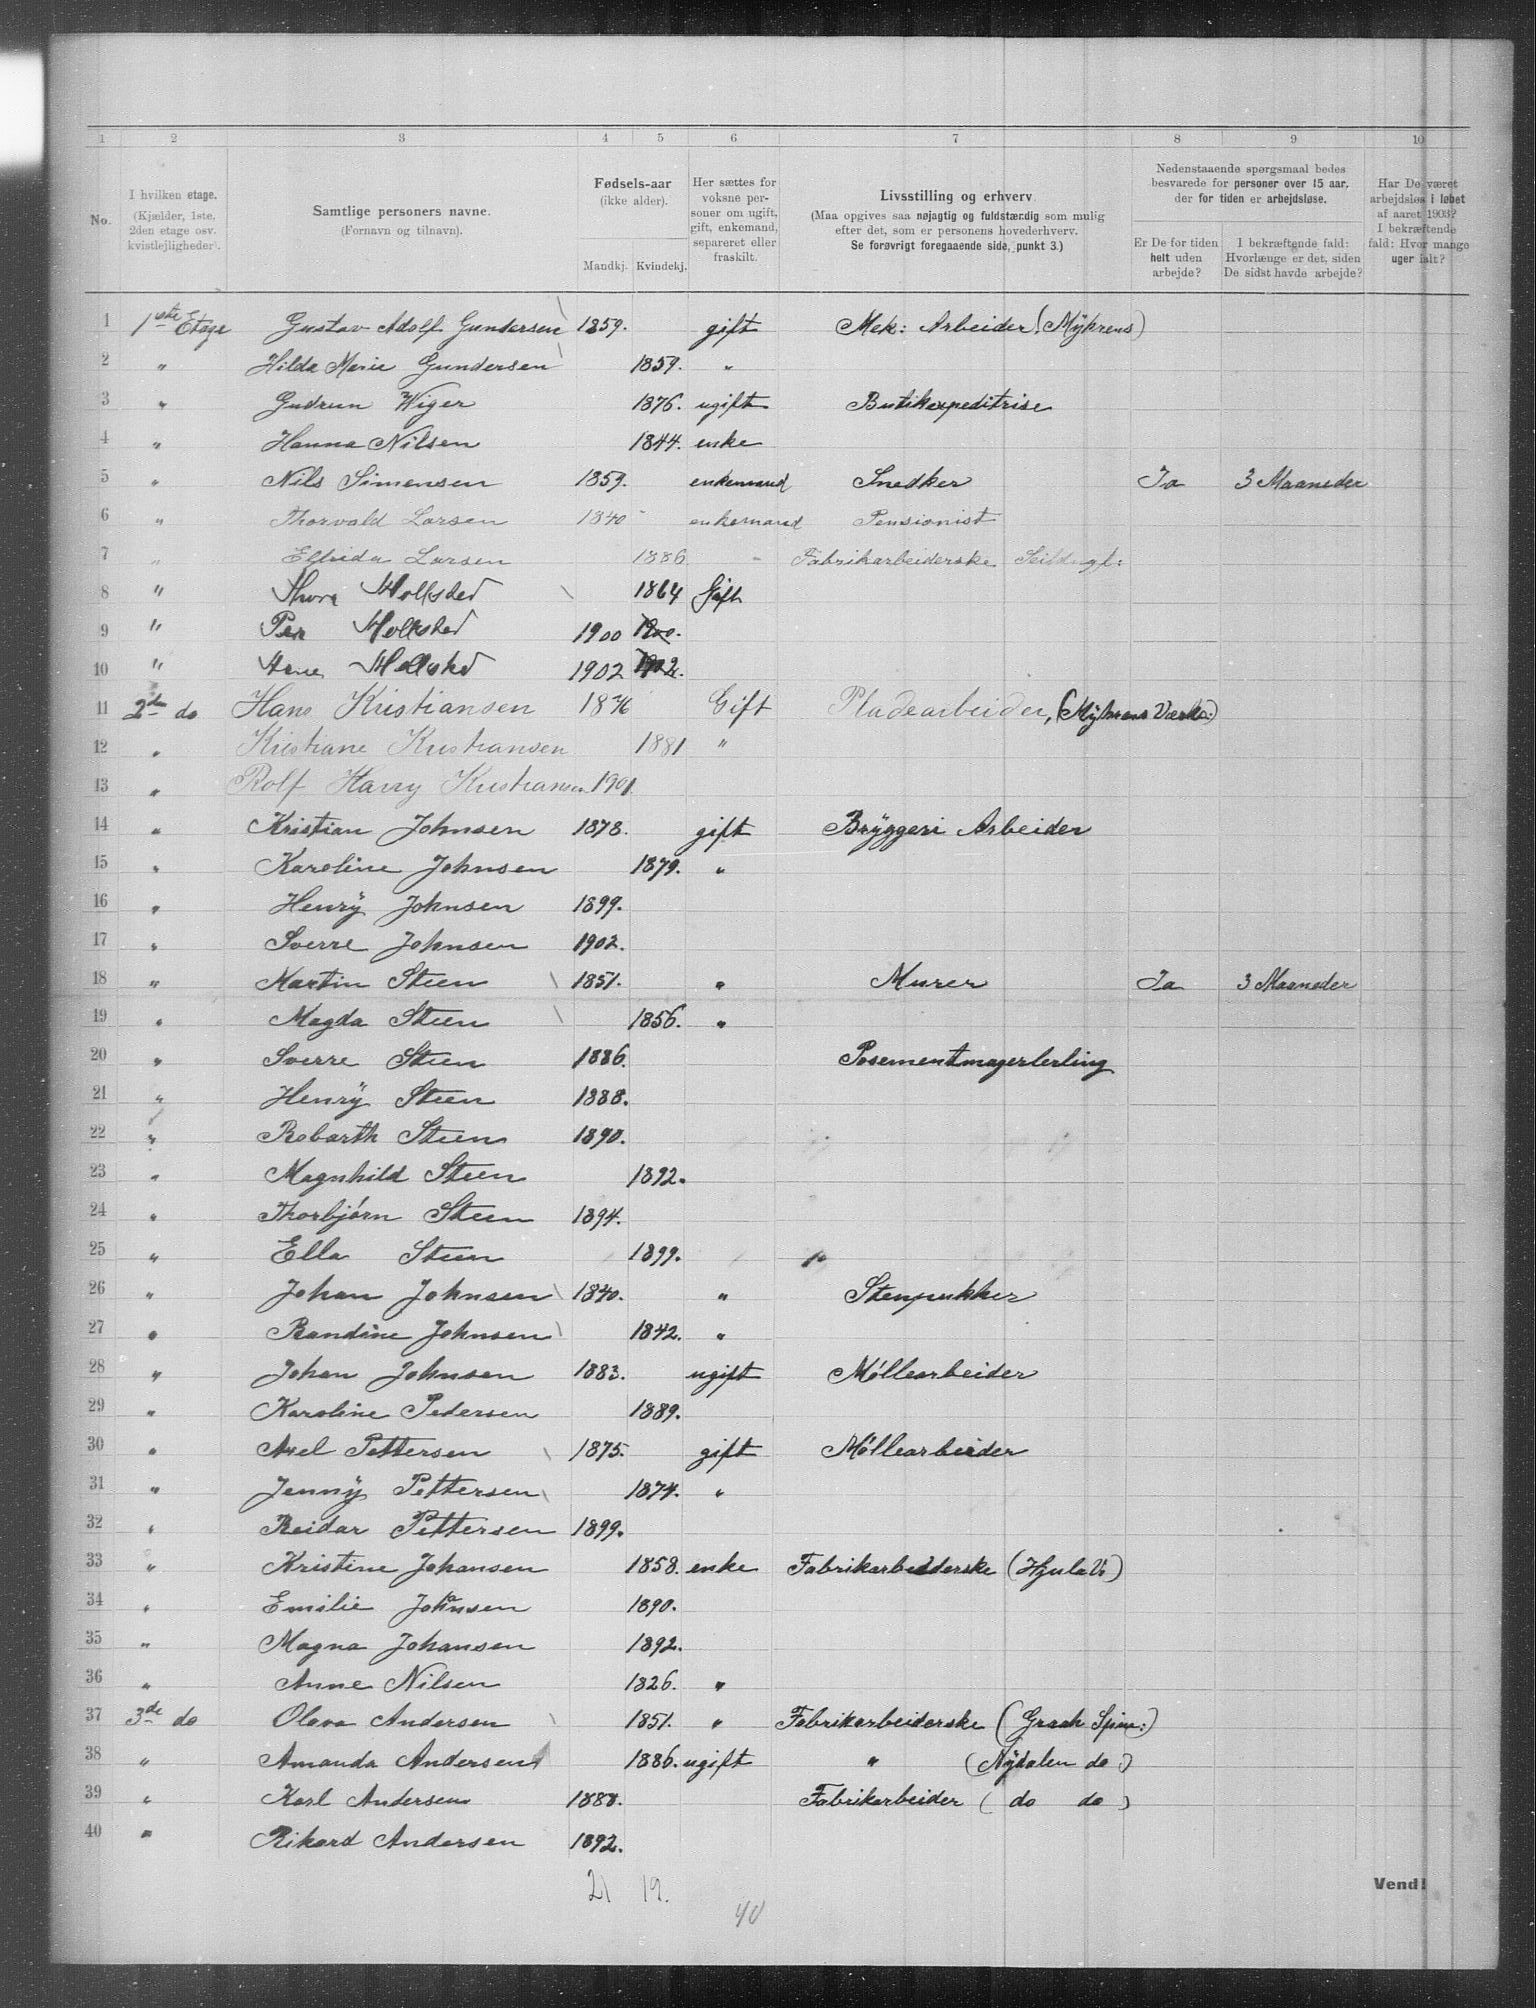 1 2 3 4 5 6 7 8 9 10
No.
I hvilken etage.
(Kjælder, 1ste,
2den etage osv.
kvistlejligheder).
Samtlige personers navne.
(Fornavn og tilnavn).
Fødsels-aar
(ikke alder).
Mandkj. Kvindekj.
Her sættes for
voksne per-
soner om ugift,
gift, enkemand,
separeret eller
fraskilt.
Livsstilling og erhverv
(Maa opgives saa nøjagtig og fuldstændig som mulig
efter det, som er personens hovederhverv.
Se forøvrigt foregaaende side, punkt 3.)
Nedenstaaende spørgsmaal bedes
besvarede for personer over 15 aar,
der for tiden er arbejdsløse.
Er De for tiden
helt uden
arbejde?
I bekræftende fald:
Hvorlænge er det, siden
De sidst havde arbejde?
Har De været
arbejdsløs i løbet
af aaret 1903?
I bekræftende
fald: Hvor mange
uger ialt?
1 1ste Etage Gustav Adolf Gundersen 1859. gift Mek: Arbeider (Myhrens)
2 " Hilda Marie Gundersen 1859. "
3 " Gudrun Wiger 1876. ugift Butikexpeditrise
4 " Hanna Nilsen 1844. enke
5 " Nils Simensen 1859. enkemand Snedker Ja 3 Maaneder
6 " Thorvald Larsen 1840 enkemand Pensionist
7 " Larsen 1886 " Fabrikarbeiderske Seildugf:
8 " Thora 1864 Gift
9 " Per 1900 1900.
10 " Arne 1902 1902.
11 2den do Hans Kristiansen 1876 Gift Pladearbeider, (Myhrens Værks:)
12 " Kristiane Kristiansen 1881 "
13 " Rolf Harry Kristiansen 1901
14 " Kristian Johnsen 1878. gift Bryggeri Arbeider
15 " Karoline Johnsen 1879. "
16 " Henrÿ Johnsen 1899.
17 " Sverre Johnsen 1902.
18 " Martin Steen 1851. " Murer Ja 3 Maaneder
19 " Magda Steen 1856. "
20 " Sverre Steen 1886. Posementmagerlerling
21 " Henrÿ Steen 1888.
22 " Robarth Steen 1890.
23 " Magnhild Steen 1892.
24 " Thorbjørn Steen 1894.
25 " Ella Steen 1899.
26 " Johan Johnsen 1840. " Stenpukker
27 " Randine Johnsen 1842. "
28 " Johan Johnsen 1883. ugift Møllearbeider
29 " Karoline Pedersen 1889.
30 " Axel Pettersen 1875. gift Møllearbeider
31 " Jennÿ Pettersen 1874. "
32 " Reidar Pettersen 1899.
33 " Kristine Johansen 1858. enke Fabrikarbeiderske (Hjula V:)
34 " Emilie Johansen 1890.
35 " Magna Johansen 1892.
36 " Anne Nilsen 1826. "
37 3de do Olava Andersen 1851. " Fabrikarbeiderske (Graah Spin:)
38 " Amanda Andersen 1886. ugift " (Nÿdalen do)
39 " Karl Andersen 1888. Fabrikarbeider ( do do )
40 " Rikard Andersen 1892.
21 19.
40
Vend!